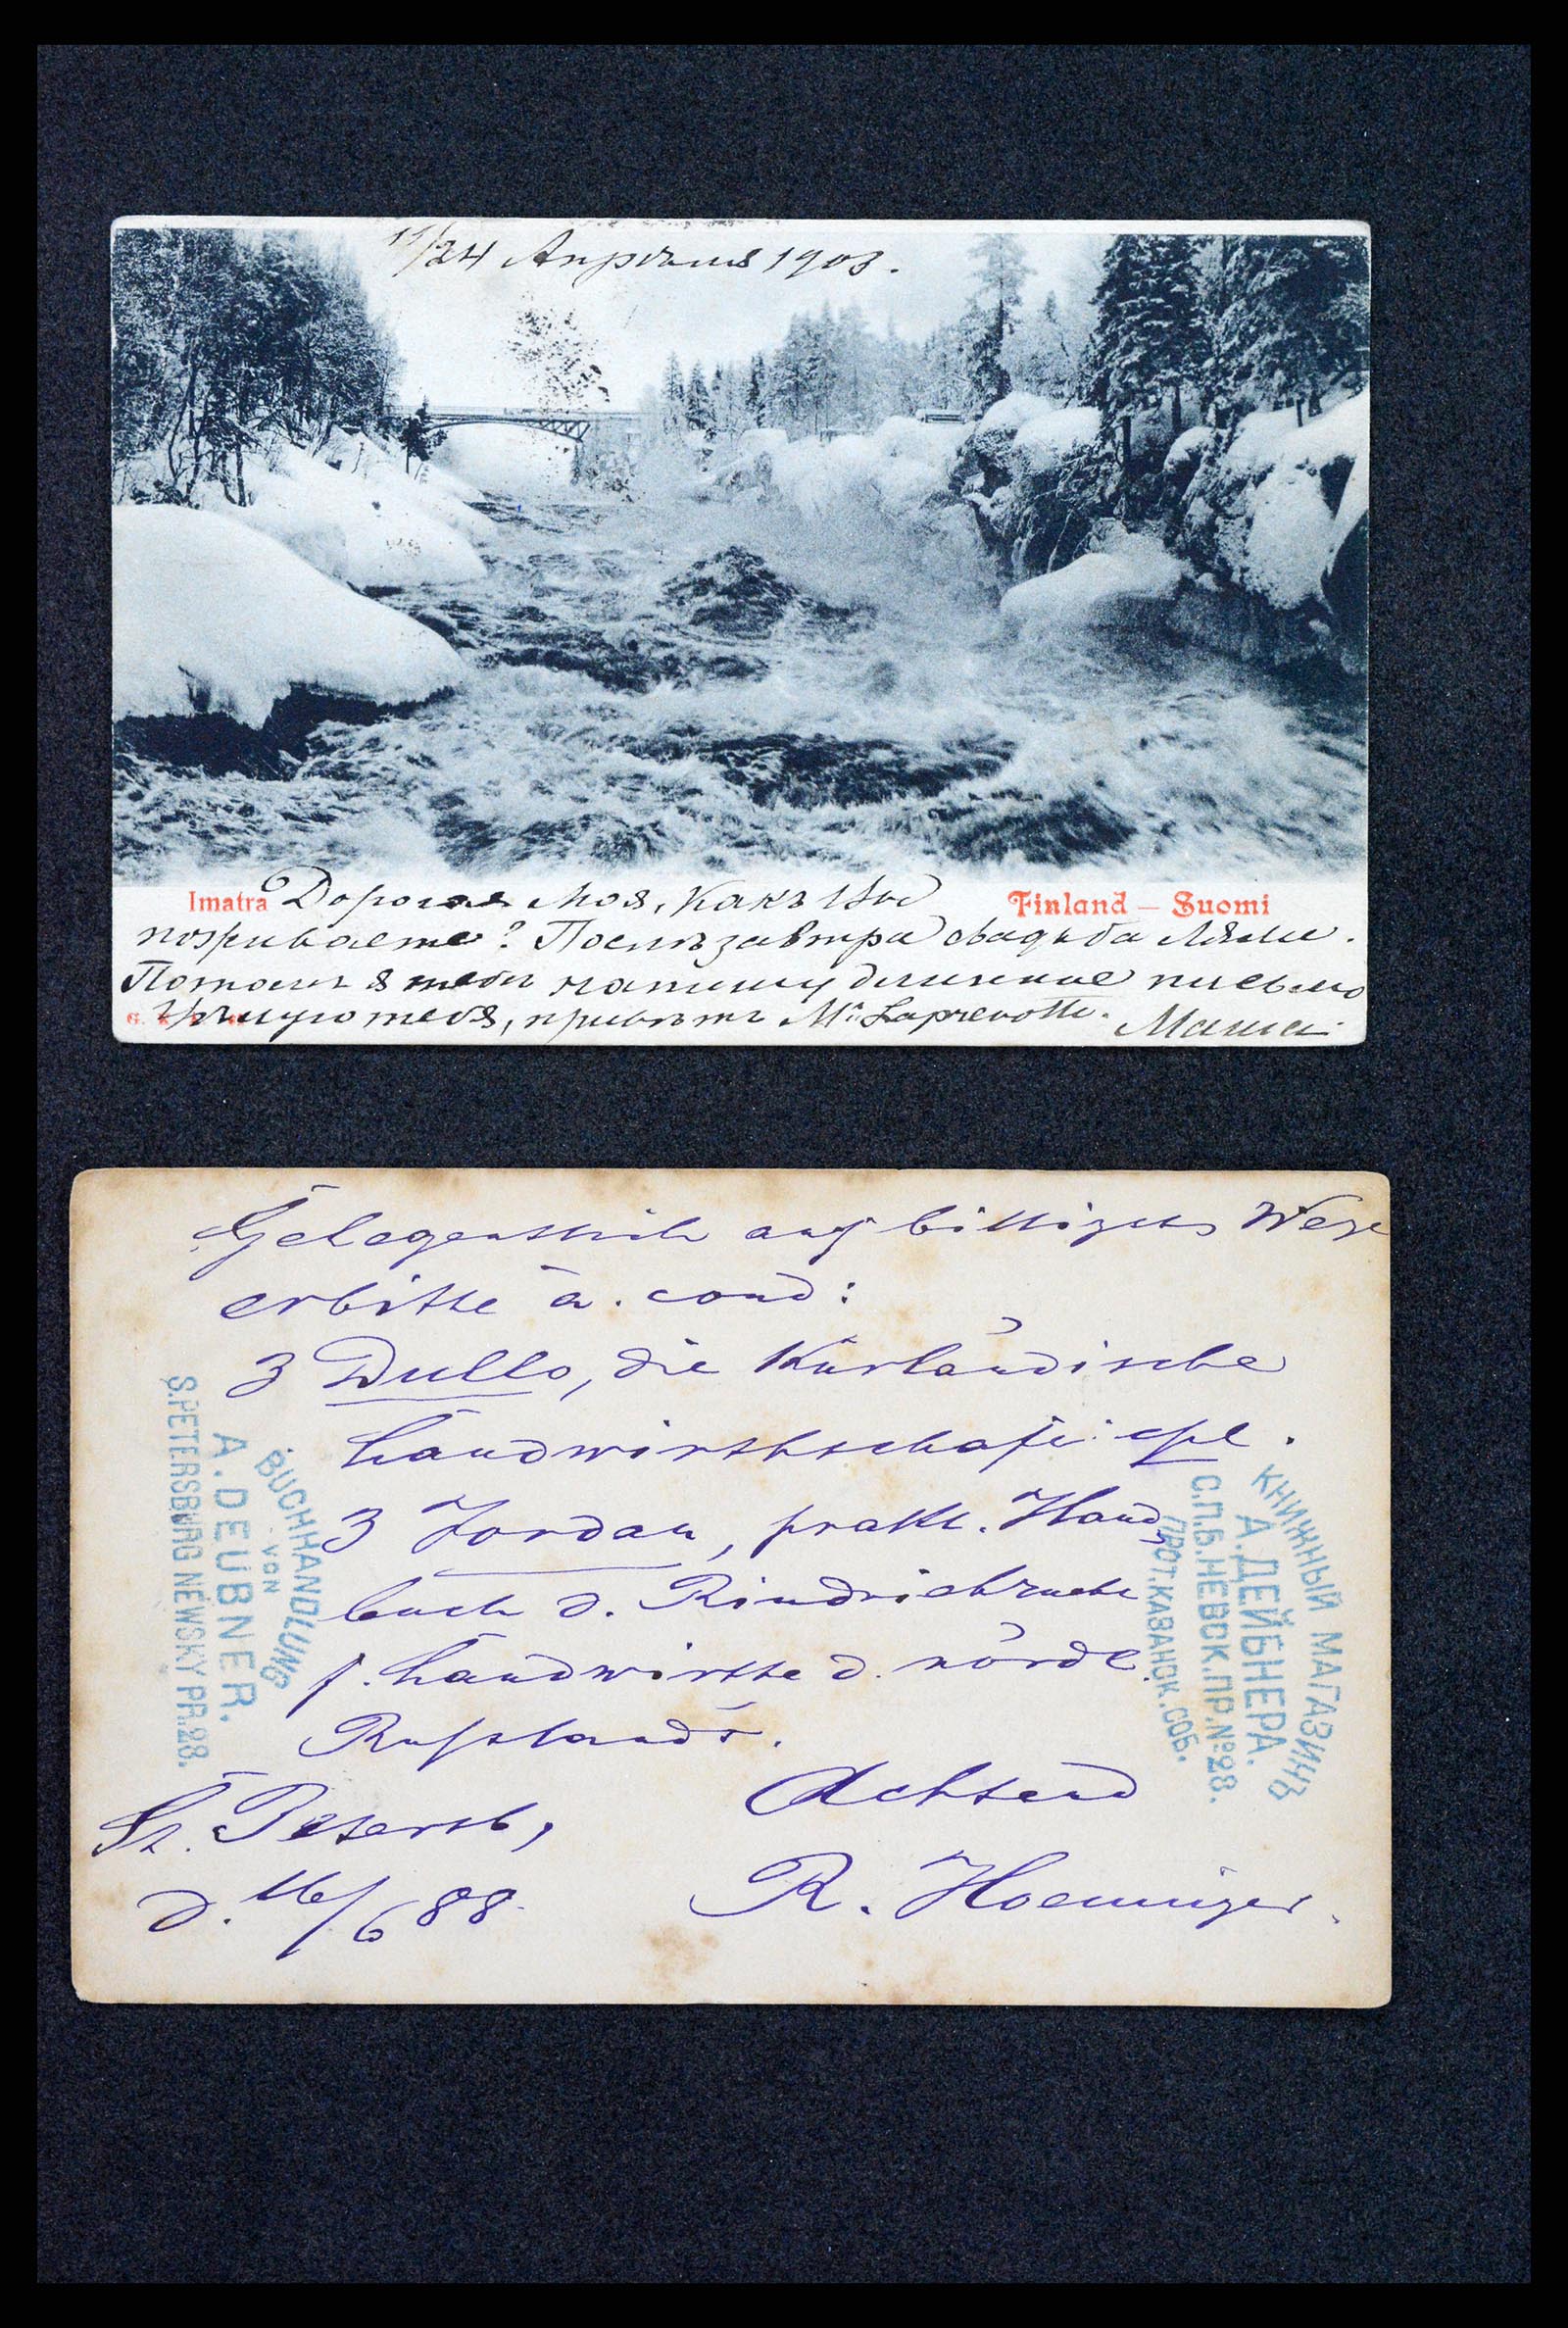 11/24 Апрѣля 1903.
Imatra
Finland – Suomi
Дорогая Моя, Какъ Вы
поживаете? Послѣзавтра свадьба Ляли.
Потомъ я тебѣ напишу длинное письмо
Цѣлую тебя, привѣтъ Mlle Laprevotte. Маша
Gelegentlich auf billigstem Wege
erbitte à cond:
3 Dullo, die Kurländische
Landwirthschaft cpl.
3 Jordan, prakt. Hand-
buch d. Rindviehzucht
f. Landwirthe d. nördl.
Russlands.
Achtend
St. Petersb,
d. 16/6 88.
R. Hoenniger.
BUCHHANDLUNG
VON
A. DEUBNER.
S. PETERSBURG NEWSKY PR. 28.
КНИЖНЫЙ МАГАЗИНЪ
А. ДЕЙБНЕРА.
С.П.Б. НЕВСК. ПР. № 28.
ПРОТ. КАЗАНСК. СОБ.